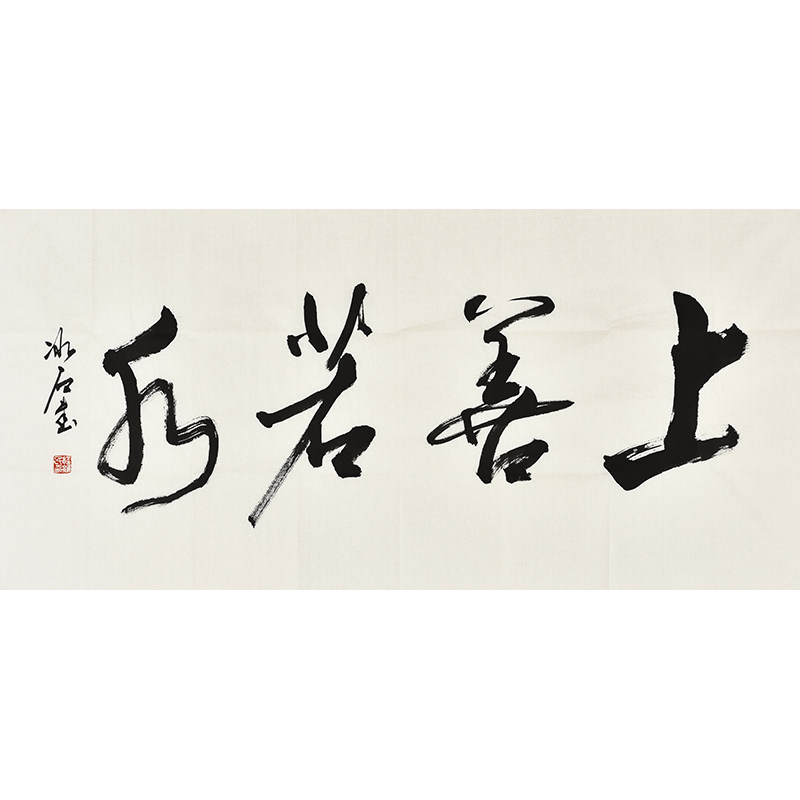 上善若水
冰石书